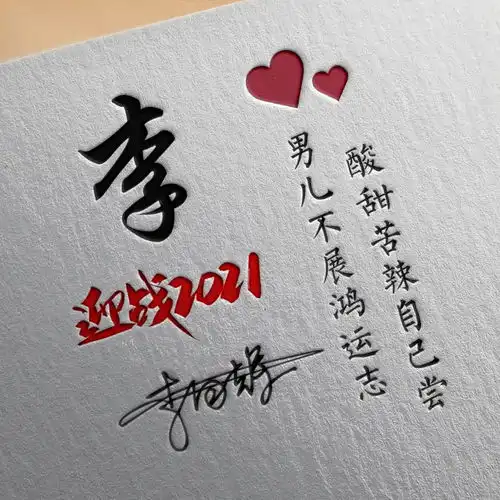 李
迎战2021
男儿不展鸿运志
酸甜苦辣自己尝